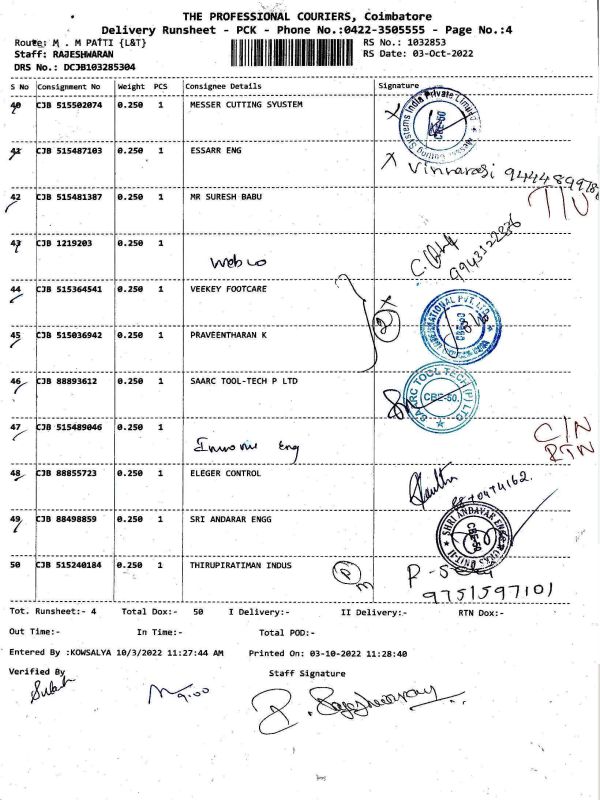 THE PROFESSIONAL COURIERS, Coimbatore
Delivery Runsheet - PCK - Phone No.:0422-3505555 - Page No.:4
Route: M . M PATTI {L&T}
RS No.: 1032853
Staff: RAJESHWARAN
RS Date: 03-Oct-2022
DRS No.: DCJB103285304
S No Consignment No Weight PCS Consignee Details Signature
40 CJB 515502074 0.250 1 MESSER CUTTING SYUSTEM
41 CJB 515487103 0.250 1 ESSARR ENG
X Vinnarasi
42 CJB 515481387 0.250 1 MR SURESH BABU
43 CJB 1219203 0.250 1
9943122836
44 CJB 515364541 0.250 1 VEEKEY FOOTCARE
45 CJB 515036942 0.250 1 PRAVEENTHARAN K
2 X
46 CJB 88893612 0.250 1 SAARC TOOL-TECH P LTD
SAARC TOOL-TECH (P) LTD
CBE-50.
47 CJB 515489046 0.250 1
Eng
C/N
RTN
48 CJB 88855723 0.250 1 ELEGER CONTROL
49 CJB 88498859 0.250 1 SRI ANDARAR ENGG
50 CJB 515240184 0.250 1 THIRUPIRATIMAN INDUS
9751597101
Tot. Runsheet:- 4 Total Dox:- 50 I Delivery:- II Delivery:- RTN Dox:-
Out Time:- In Time:- Total POD:-
Entered By :KOWSALYA 10/3/2022 11:27:44 AM Printed On: 03-10-2022 11:28:40
Verified By Staff Signature
9.00